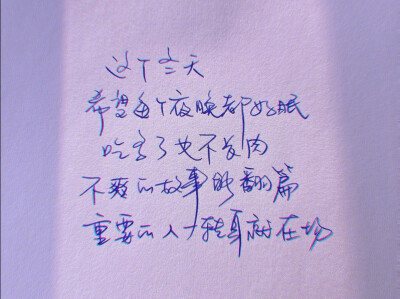 这个冬天
希望每个夜晚都好眠
吃多了也不发肉
不爽的故事能翻篇
重要的人一转身就在场